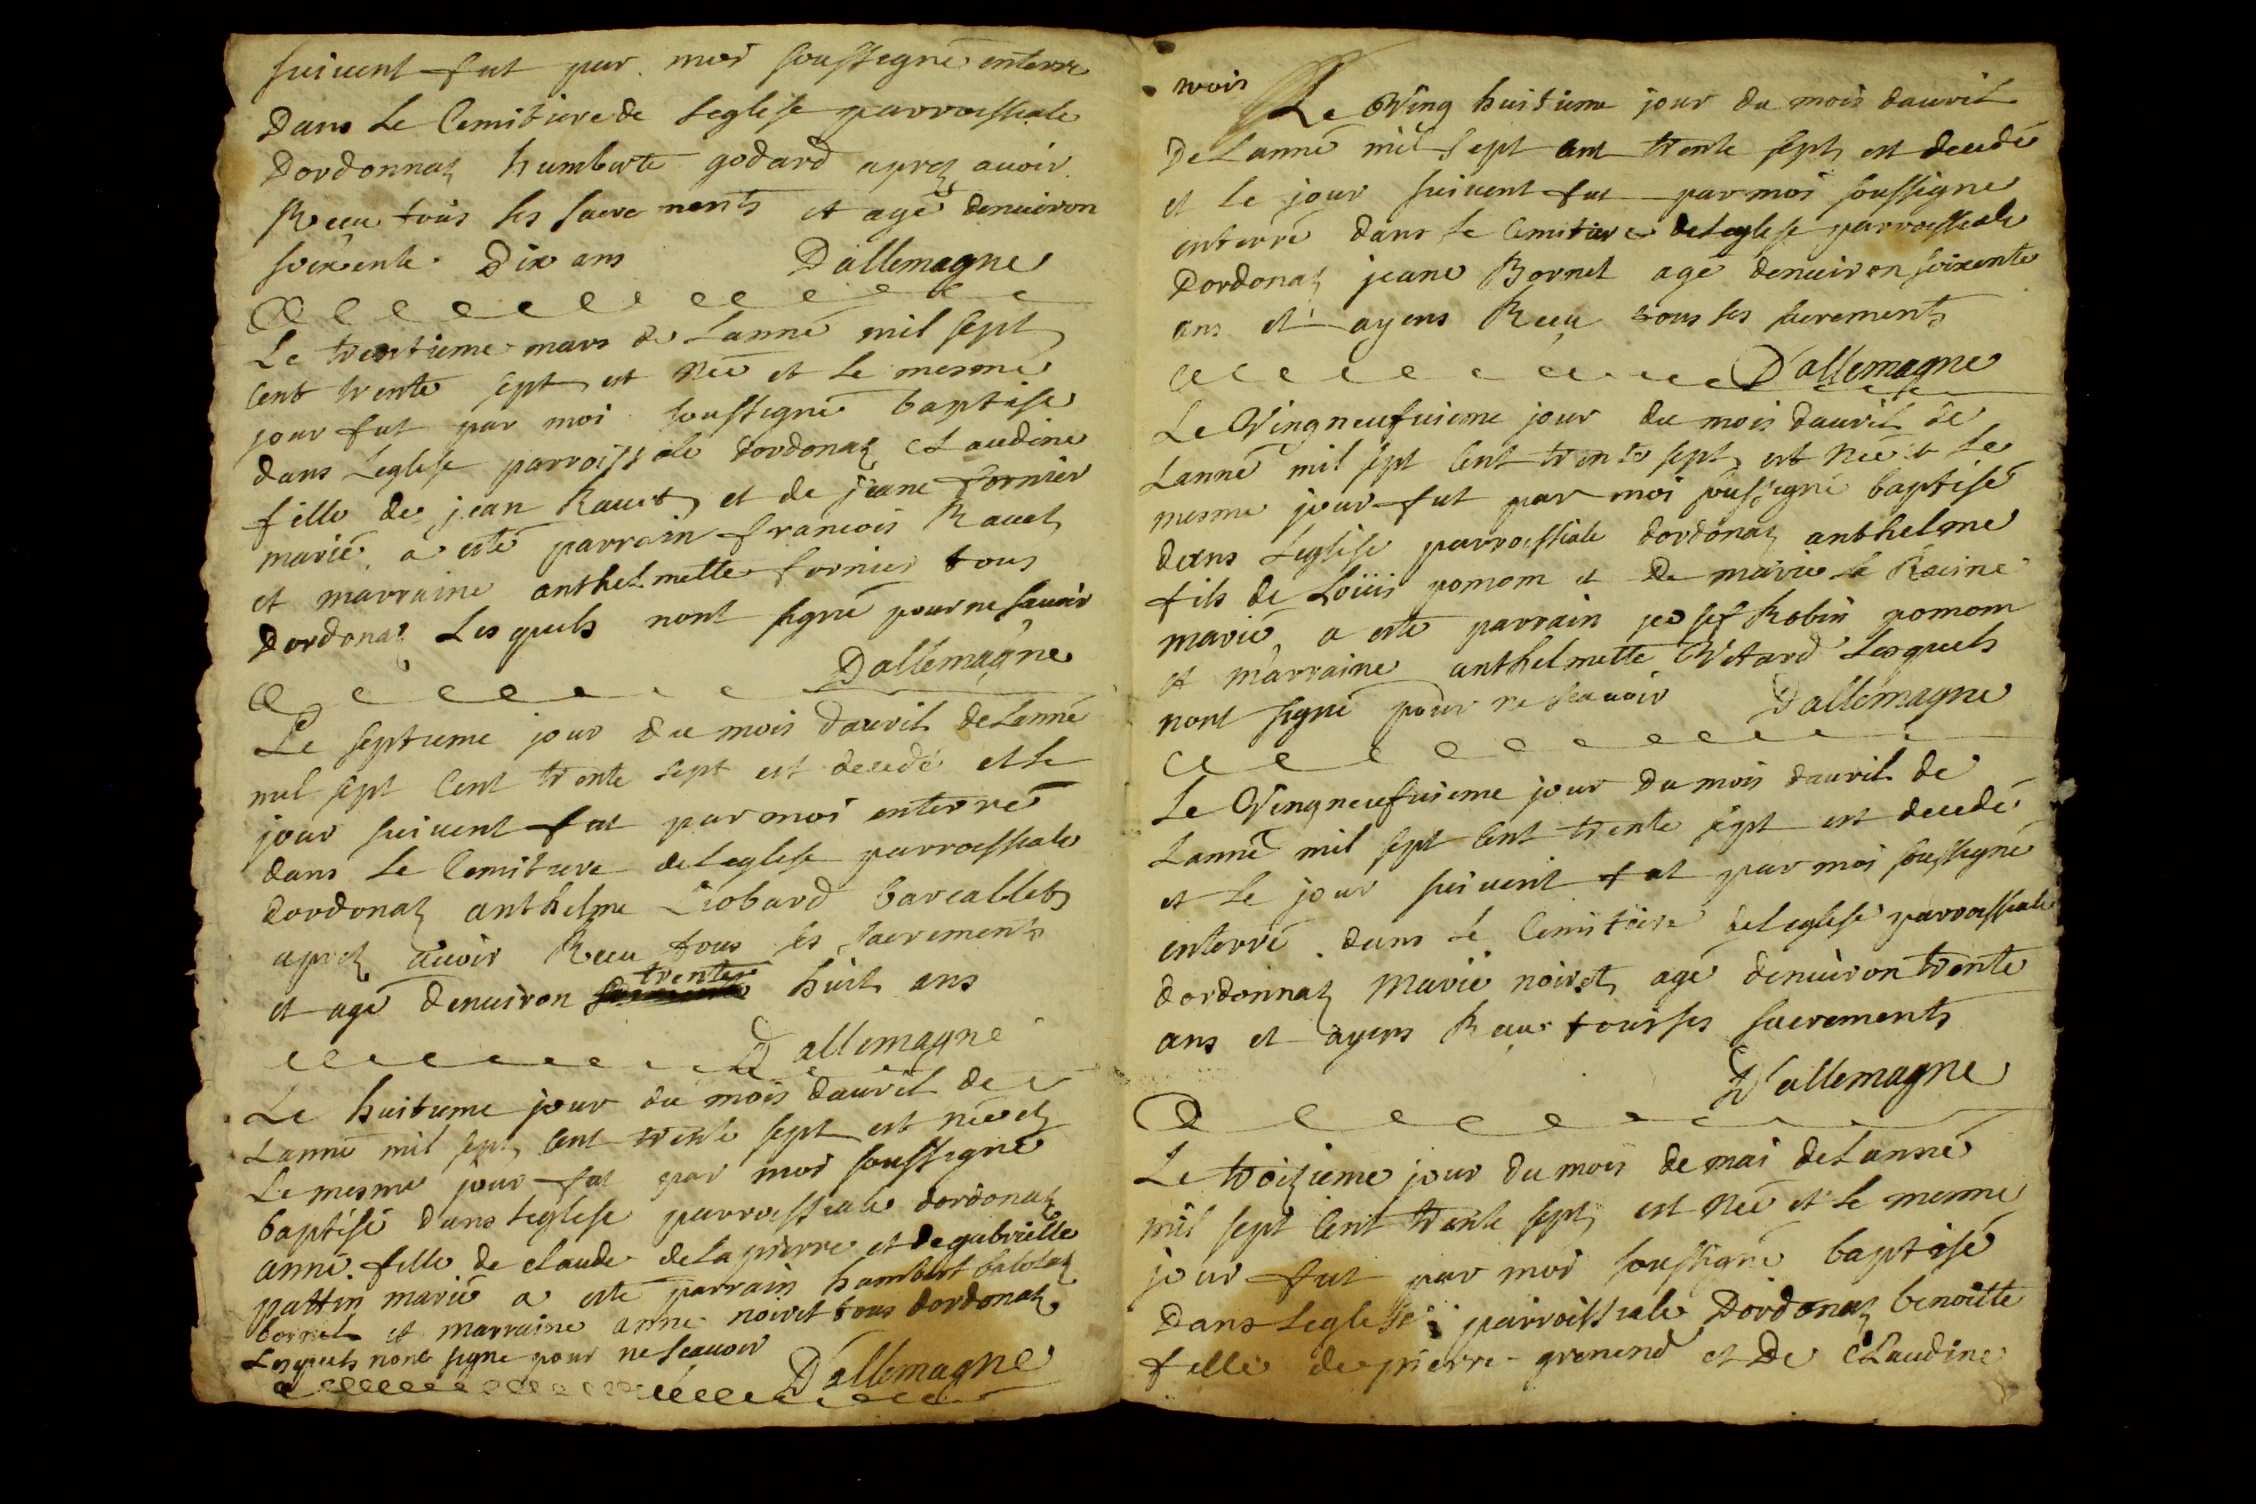 suivent fut par moi soussigné enterre
Dans le Cemitiere de Leglise parroissiale
Dordonnaz humberte godard aprez avoir
Recu tous ses sacrements et agé denuiron
soixente Dix ans Dallemagne
Le trentieme mars de Lanné mil sept
Cent trente sept est Née et le mesme
jour fut par moi soussigné baptise
dans Leglise parroissiale dordonaz Claudine
fille de jean Rauet et de jeane fornier
marié, a esté parrain francois Rauet
et marraine anthelmette fornier tous
Dordonaz Lesquels nont signé pour ne sauoir
Dallemagne
Le septieme jour du mois dauril de Lanné
mil sept Cent trente sept est decedé et le
jour suiuent fut par moi enterré
dans le Cemitiere de Leglise parroissiale
dordonaz anthelme Liobard barcallet
aprez auoir Recu tous ses sacrements
et agé denuiron trente huit ans
Dallemagne
Le huitieme jour du mois dauril de
Lanné mil sept Cent trente sept est née et
Le mesme jour fut par moi soussigné
baptisé dans Leglise parroissiale dordonaz
anne fille de claude de La pierre et de gabrielle
pattin marié a esté parrain humbert
bornet et marraine anne noiret tous dordonaz
Lesquels nont signe pour ne scauoir
Dallemagne
Le Ving huitieme jour du mois dauril
De Lanné mil sept Cent trente sept est decedé
et le jour suiuent fut par moi soussigne
enterré dans le Cemitiere de Leglise parroissiale
Dordonaz jeane Bornet agé denuiron soixente
ans et ayens Recu tous ses sacrements
Dallemagne
Le Vingneufuieme jour du mois dauril de
Lanné mil sept Cent trente sept est Née et Le
mesme jour fut par moi soussigné baptisé
dans Leglise parroissiale dordonaz anthelme
fils de Loüis pomom et De marie La Racine
marié, a esté parrain josef Robin pomom
et marraine anthelmette Vetard Lesquels
nont signé pour ne scauoir Dallemagne
Le Vingneufuieme jour du mois dauril de
Lanné mil sept Cent trente sept est decedé
et le jour suiuent fut par moi soussigné
enterré dans le Cemitiere de Leglise parroissiale
dordonnaz Marie noiret agé denuiron trente
ans et ayens Recu tous ses sacrements
Dallemagne
Le troizieme jour du mois de mai de Lanné
mil sept Cent trente sept est Née et le mesme
jour fut par moi soussigné baptisé
Dans Leglise parroissiale Dordonaz benoitte
fille de pierre grenend et De Claudine